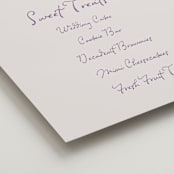 Sweet Treats
Wedding Cake
Cookie Bar
Decadent Brownies
Mini Cheesecakes
Fresh Fruit